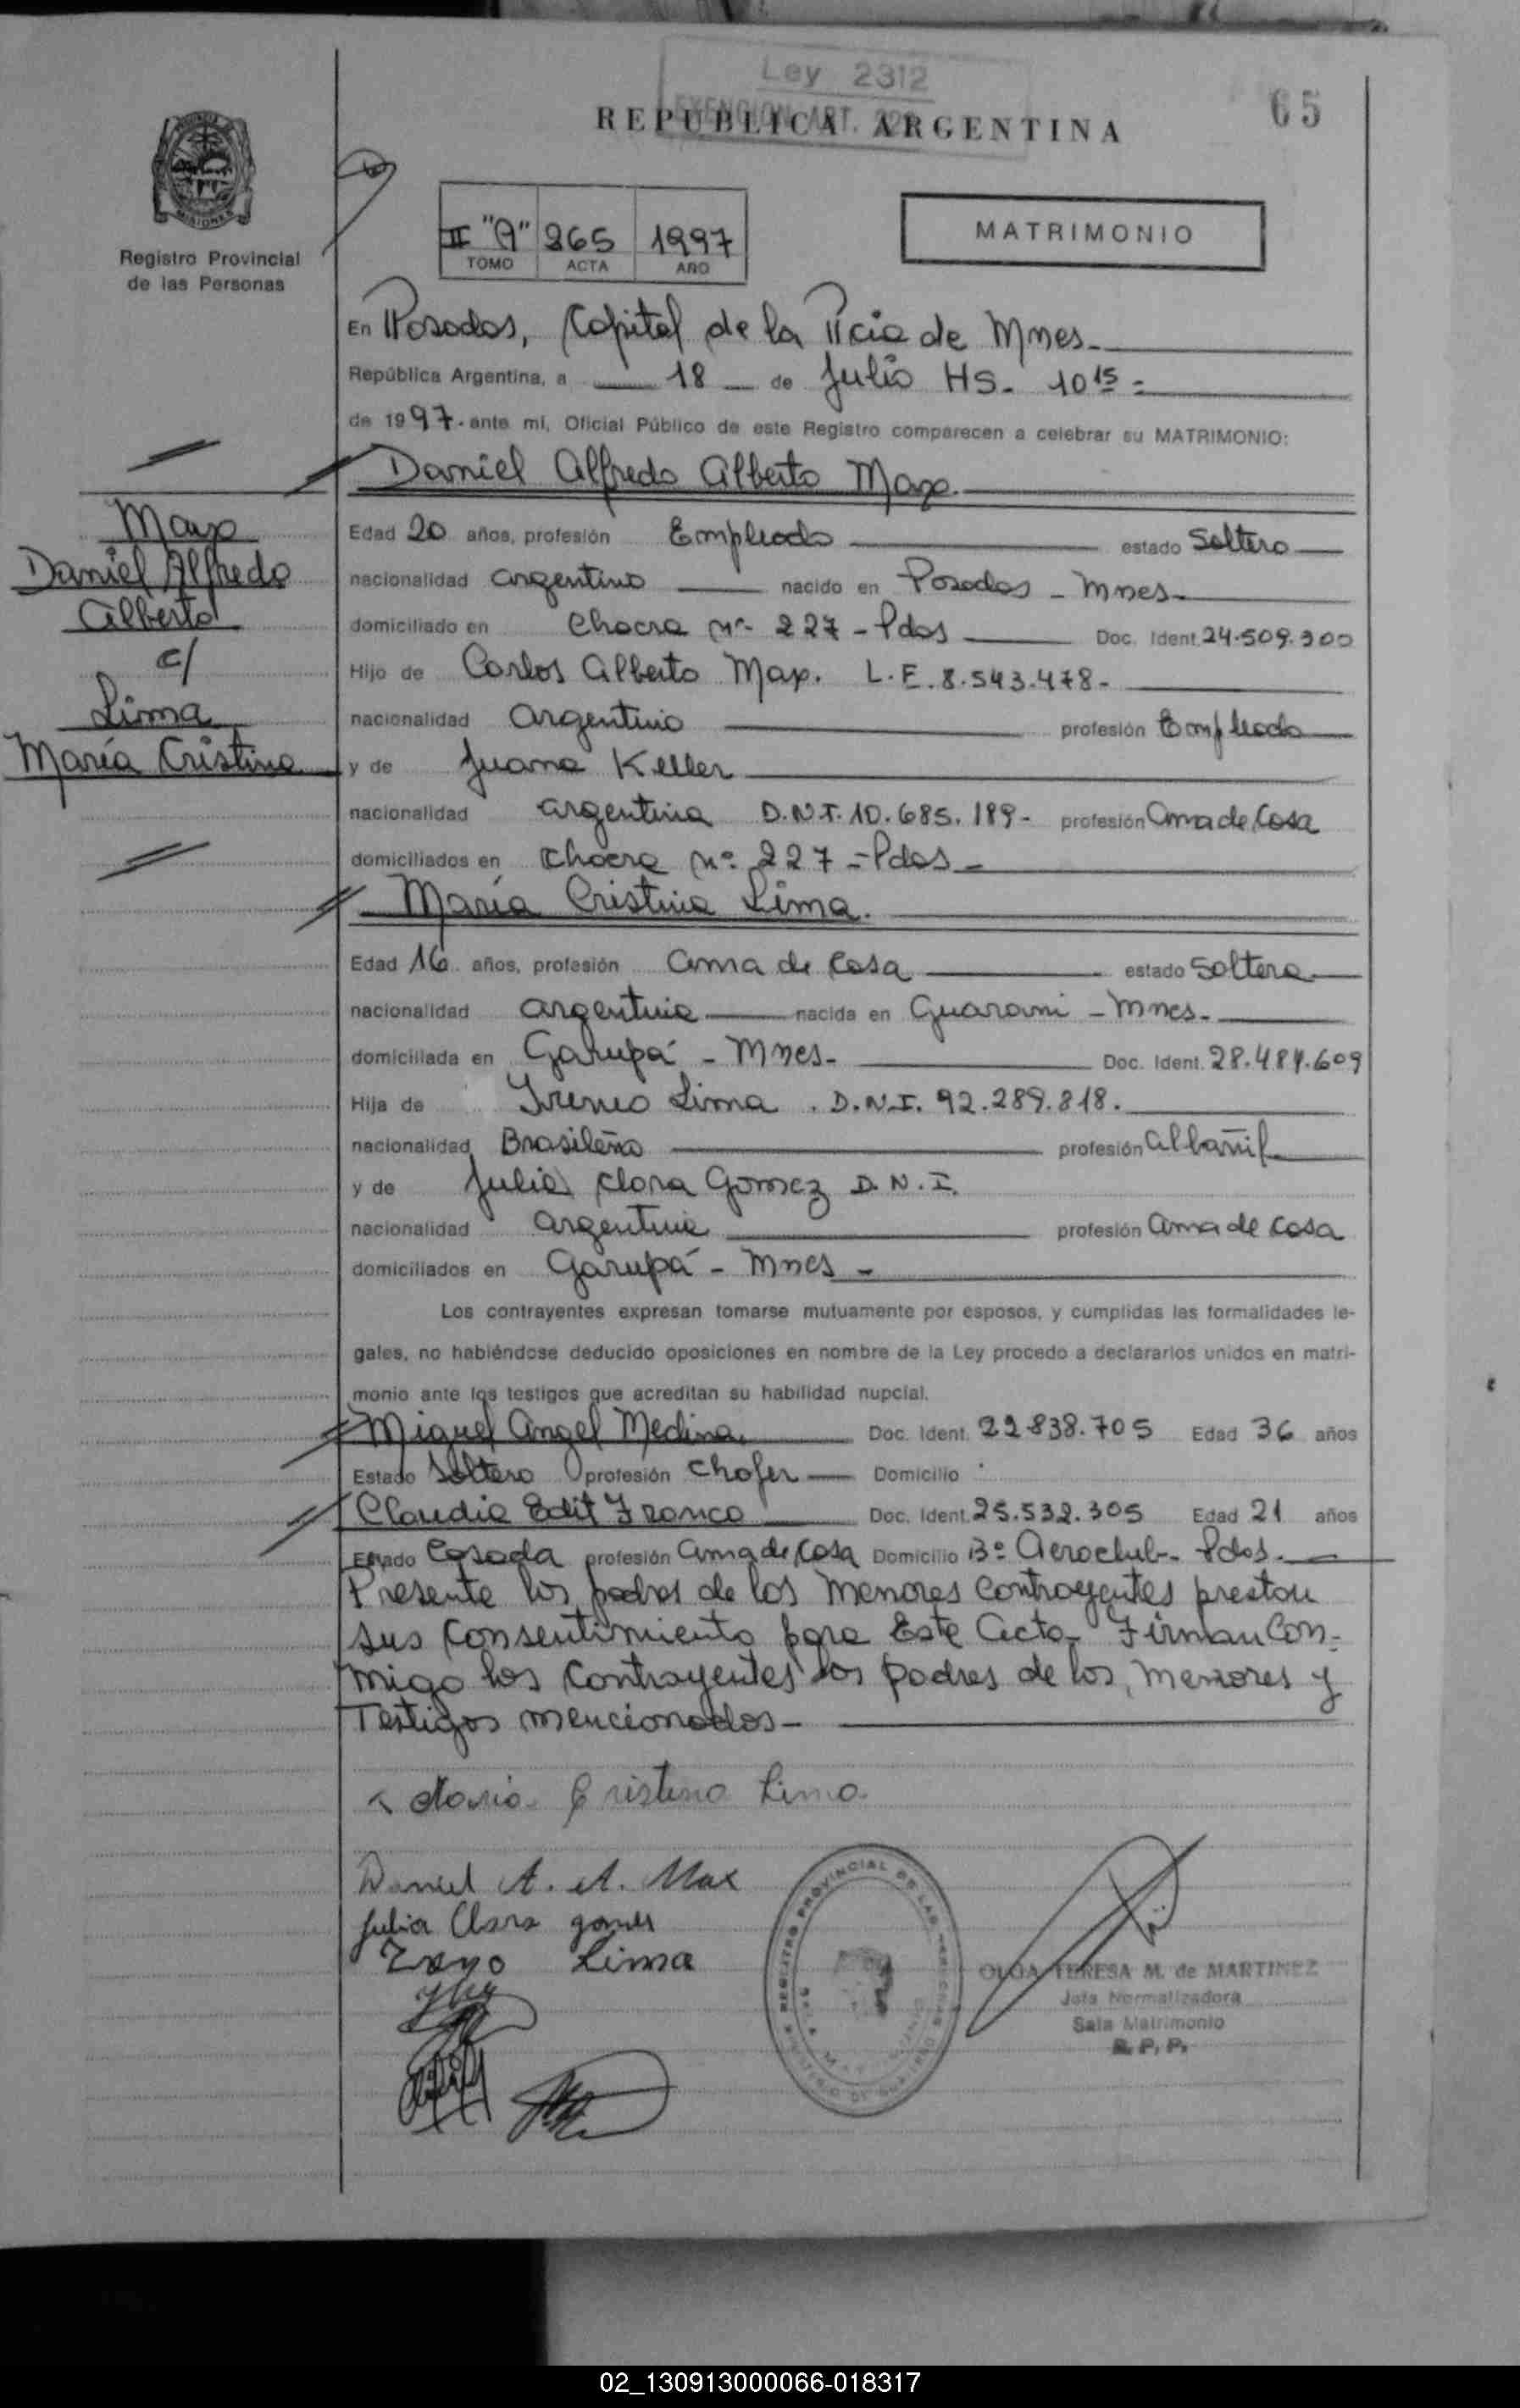 Ley 2312
EXENCION ART.
65
REPUBLICA ARGENTINA
MISIONES
Registro Provincial
de las Personas
II "A" 265 1997
TOMO ACTA AÑO
MATRIMONIO
En Posadas, Capital de la Pcia de Mnes.
República Argentina, a 18 de Julio HS. 10 15
de 1997. ante mí, Oficial Público de este Registro comparecen a celebrar su MATRIMONIO:
Daniel Alfredo Alberto Max.
Max
Daniel Alfredo
Alberto
c/
Lima
María Cristina
Edad 20 años, profesión Empleado estado Soltero
nacionalidad argentino nacido en Posadas - Mnes.
domiciliado en Chacra Nº 227 - Pdas Doc. Ident. 24.509.300
Hijo de Carlos Alberto Max. L.E. 8.543.478-
nacionalidad argentino profesión Empleado
y de Juana Keller
nacionalidad argentina D.N.I. 10.685.189- profesión Ama de Casa
domiciliados en Chacra Nº 227 - Pdas -
María Cristina Lima.
Edad 16 años, profesión ama de Casa estado Soltera
nacionalidad argentina nacida en Guaraní - Mnes.
domiciliada en Garupá - Mnes- Doc. Ident. 28.484.609
Hija de Ireneo Lima. D.N.I. 92.289.818.
nacionalidad Brasileño profesión albañil
y de Julia Clara Gomez D.N.I.
nacionalidad argentina profesión ama de casa
domiciliados en Garupá - Mnes -
Los contrayentes expresan tomarse mutuamente por esposos, y cumplidas las formalidades le-
gales, no habiéndose deducido oposiciones en nombre de la Ley procedo a declararlos unidos en matri-
monio ante los testigos que acreditan su habilidad nupcial.
Miguel Angel Medina. Doc. Ident. 22.838.705 Edad 36 años
Estado Soltero profesión Chofer Domicilio
Claudia Edit Franco Doc. Ident. 25.532.305 Edad 21 años
Estado Casada profesión ama de Casa Domicilio Bº Aeroclub - Pdas.
Presente los padres de los menores contrayentes prestan
sus Consentimiento para Este Acto - Firman Con-
migo los Contrayentes los padres de los, menores y
Testigos mencionados -
María Cristina Lima
Daniel A. A. Max
Julia Clara gomes
Lima
REGISTRO PROVINCIAL DE LAS PERSONAS
OLGA TERESA M. de MARTINEZ
Jefa Normalizadora
Sala Matrimonio
R. P. P.
02_130913000066-018317